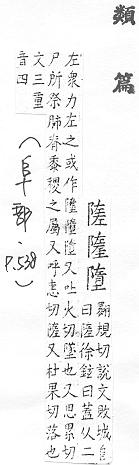 類篇
隓墮
翾規切說文敗城𨸏
曰隓徐鉉曰蓋从二
左衆力左之或作墮又吐火切也又思累切
尸所祭肺脊黍稷之屬又呼恚切又杜果切落也
文三重
音四
(阜部 P.538)